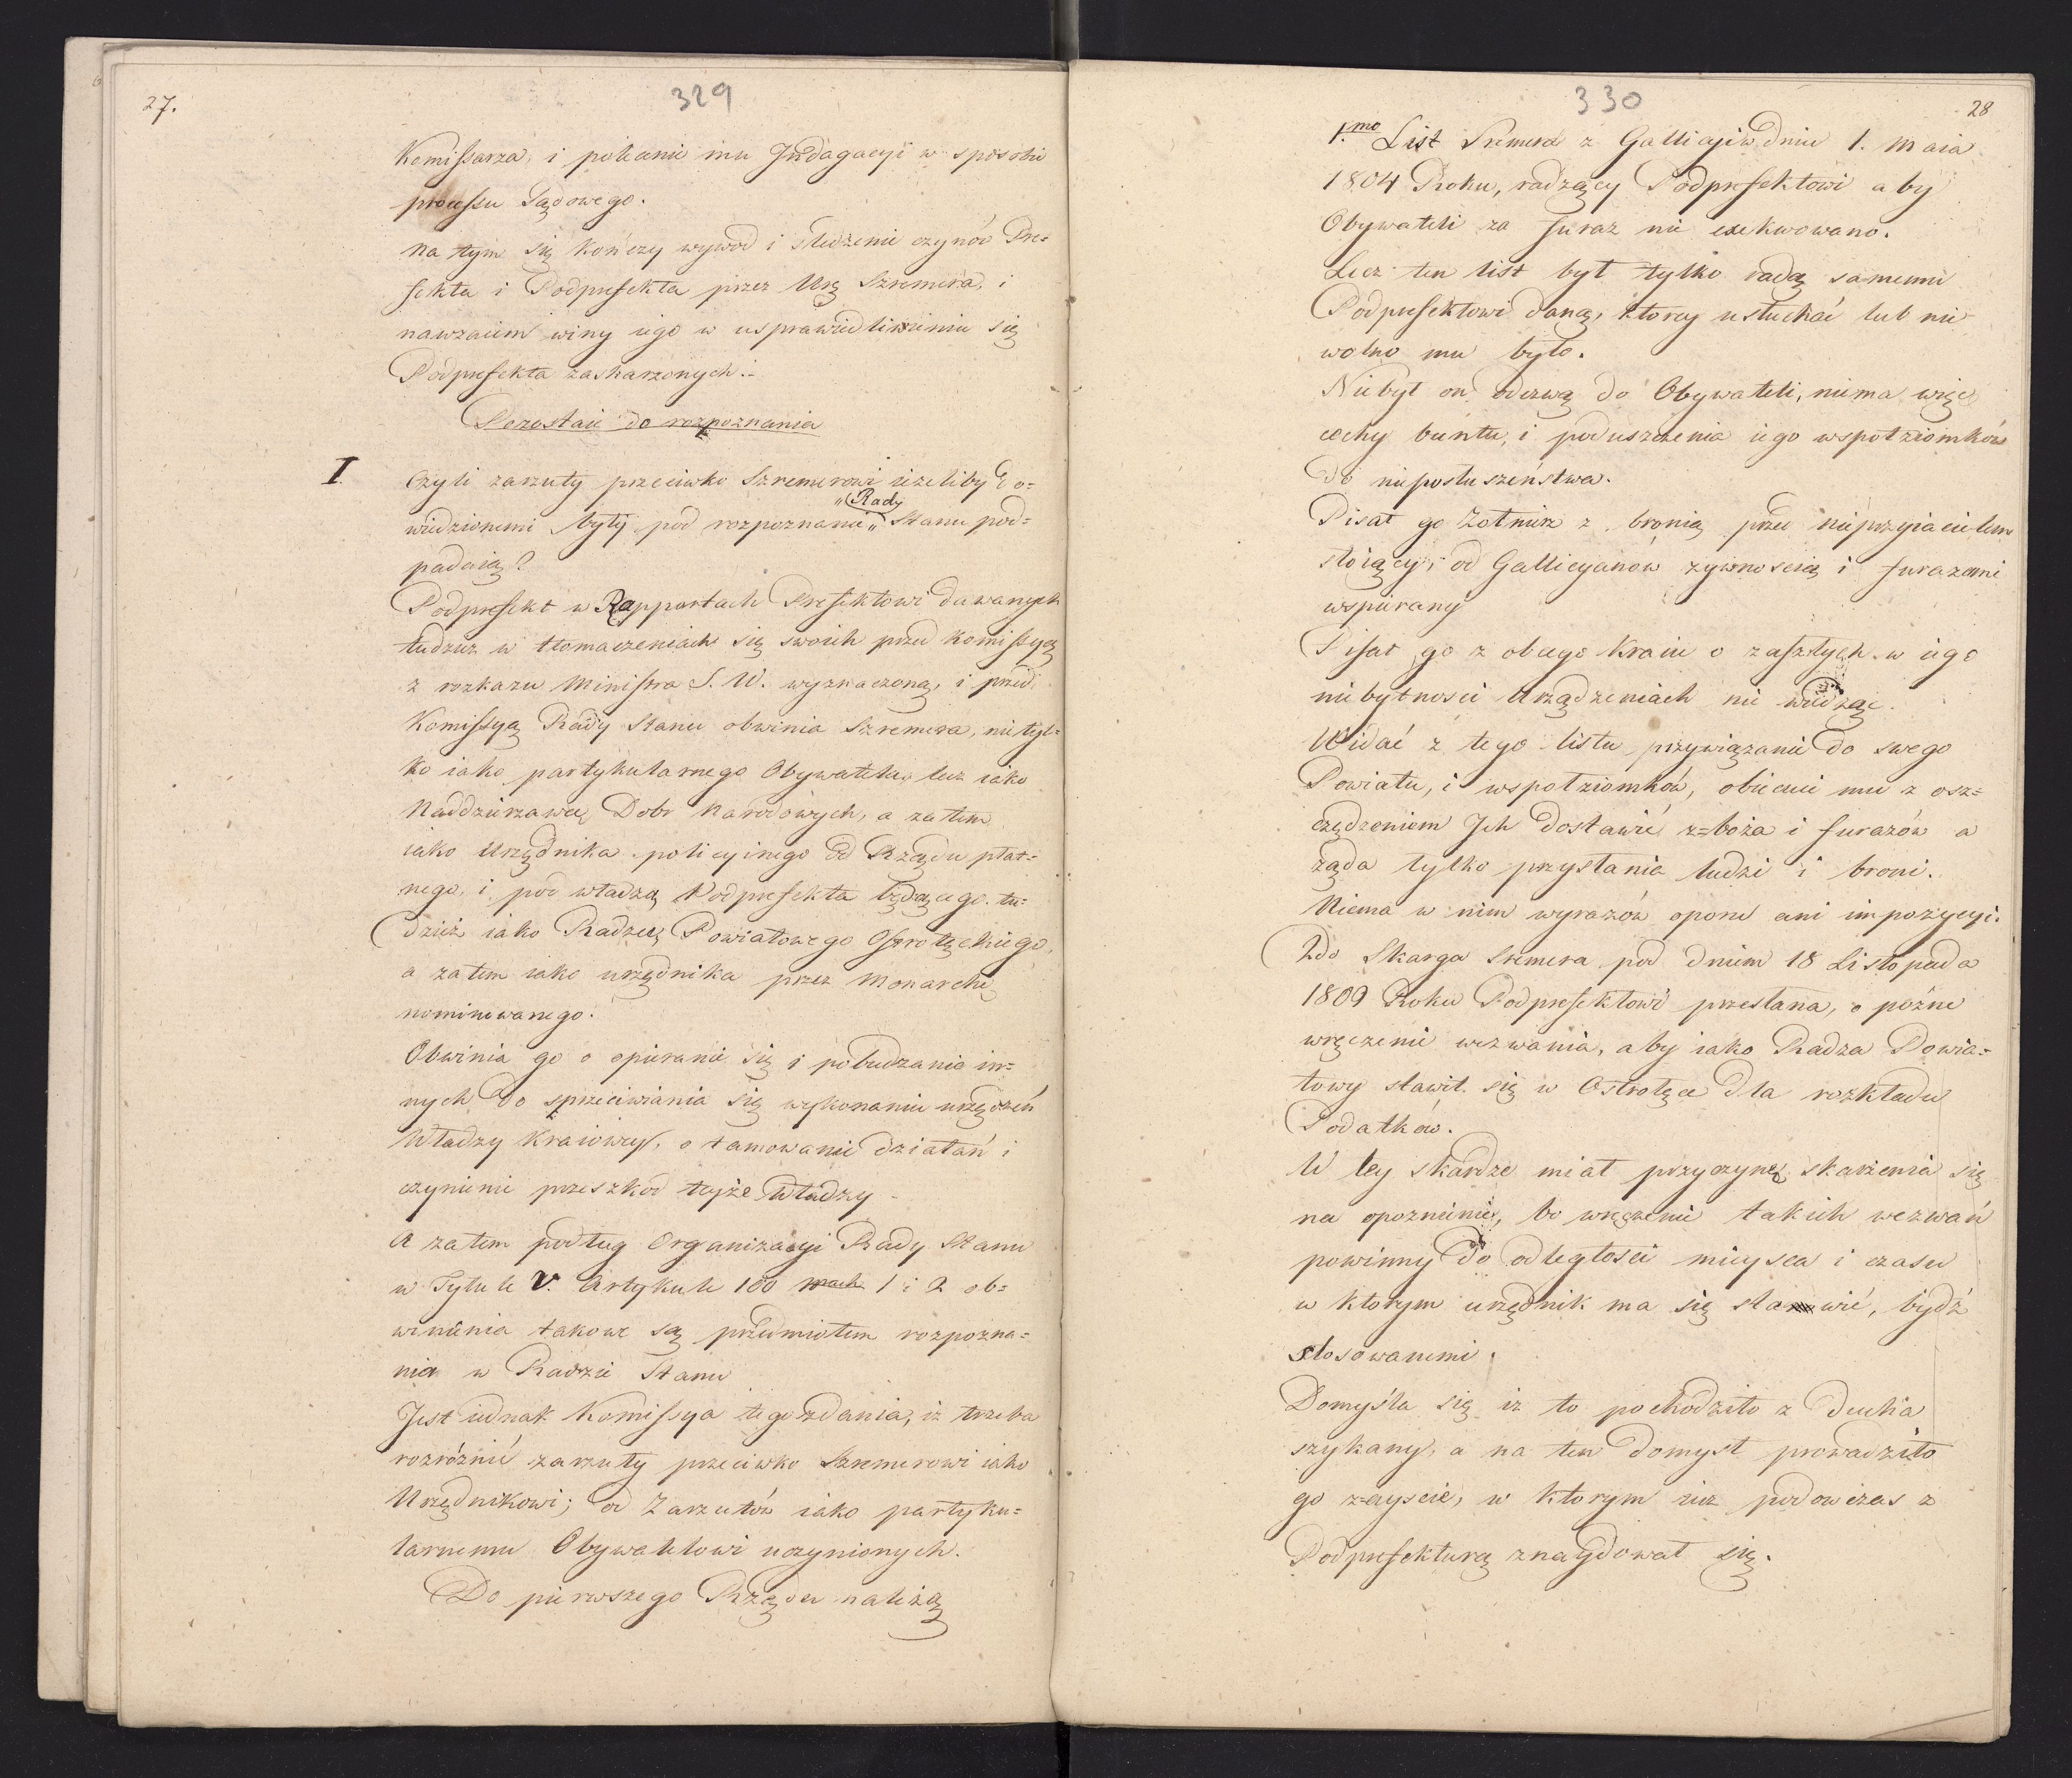 27.
329
Komissarza, i polecenie mu Indagacyi w sposobie
processu Sądowego.
Na tym się kończy wywod i sledzenie czynów Pre=
fekta i Podprefekta przez Urę Szremera, i
nawzaiem winy iego w usprawiedliwieniu się
Podprefekta zaskarzonych.-
Pozostaie do rozpoznania
I Czyli zarzuty przeciwko Szremerowi ieżeliby do=
„Rady
wiedzionemi były pod rozpoznanie „ Stanu pod=
padaią?
Podprefekt w Rapportach Prefektowi dawanych
tudziez w tłomaczeniach się swoich przed Komissyą
z rozkazu Ministra S. W. wyznaczoną, i przed
Komissyą Rady Stanu obwinia Szremera, nie tyl=
ko iako partykularnego Obywatela, lecz iako
Naddzierzawcę Dobr Narodowych, a zatem
iako Urzędnika policyinego od Rządu płat=
nego, i pod władzą Podprefekta będącego. tu=
dzież iako Radzcę Powiatowego Ostrołęckiego,
a zatem iako urzędnika przez Monarchę
nominowanego.
Obwinia go o opieranie się i pobudzanie in=
nych do sprzeciwiania się wykonaniu urządzeń
Władzy Kraiowey, o tamowanie działań i
czynienie przeszkod teyże Władzy -
A zatem podług Organizacyi Rady Stanu
w Tytule V. Artykule 100 mach 1 i 2 ob=
winienia takowe są przedmiotem rozpozna=
nia w Radzie Stanu
Jest iednak Komissya tego zdania, iz trzeba
rozróżnić zarzuty przeciwko Szremerowi iako
Urzędnikowi; od Zarzutów iako partyku=
larnemu Obywatelowi uczynionych.
Do pierwszego Rzędu należą
330
28
1.mo List Sremera z Gallicyi w dniu 1. Maia
1804 Roku, radzący Podprefektowi aby
Obywateli za furaz nie exekwowano.
Lecz ten list był tylko radą samemu
Podprefektowi daną, ktorey usłuchać lub nie
wolno mu było.
Niebył on odezwą do Obywateli, niema więc
cechy buntu, i poduszczenia iego wspołziomków
do nieposłuszeństwa.
Pisał go Zołnierz z bronią przed nieprzyiacielem
stoiący, od Gallicyanów zywnoscią i furazami
wspierany
Pisał go z obcego Kraiu o zaszłych w iego
niebytnosci Urządzeniach nie wiedząc.
Widać z tego listu przywiązanie do swego
Powiatu, i wspołziomków, obiecuie mu z osz=
czędzeniem Ich dostawić z=boża i furazów a
ząda tylko przysłania ludzi i broni.
Niema w nim wyrazów oporu ani impozycyi.
2do Skarga Sremera pod dniem 18 Listopada
1809 Roku Podprefektowi przesłana, o pożne
wręczenie wezwania, aby iako Radza Powia=
towy stawił się w Ostrołęce dla rozkładu
Podatków.
W tey skardze miał przyczynę skarżenia się
na opoznienie, bo wręczenie takich wezwań
powinny do odległosci mieysca i czasu
w ktorym urzędnik ma się stawić, bydź
stosowanemi.
Domyśla się iz to pochodziło z ducha
szykany, a na ten domysł prowadziło
go zayscie, w ktorym iuz podowczas z
Podprefekturą znaydował się.